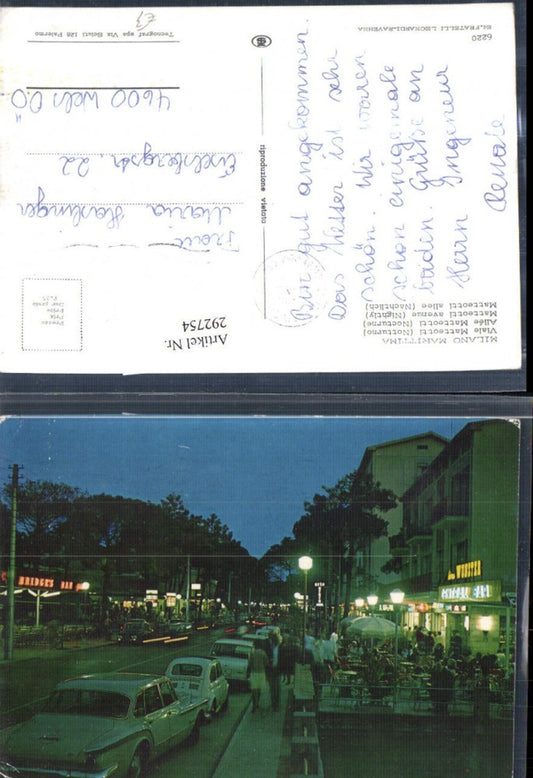 MILANO MARITTIMA
Viale Matteotti (Notturno)
Allée Matteotti (Nocturne)
Matteotti avenue (Nightly)
Matteotti allee (Nächtlich)
Bin gut angekommen.
Das Wetter ist sehr
schön. Wir waren
schon einigemale
baden. Grüße an
Herrn Ingeneur
Renate
6220
Ed. FRATELLI LEONARDI-RAVENNA
riproduzione vietata
Artikel Nr.
292754
Frau
Maria Haslinger
Eiselsbergstr. 22
4600 Wels O.Ö.
Tecnograf spa Via Beiuti 128 Palermo
BRIDGE'S BAR
WURSTER
GENERAL BAR